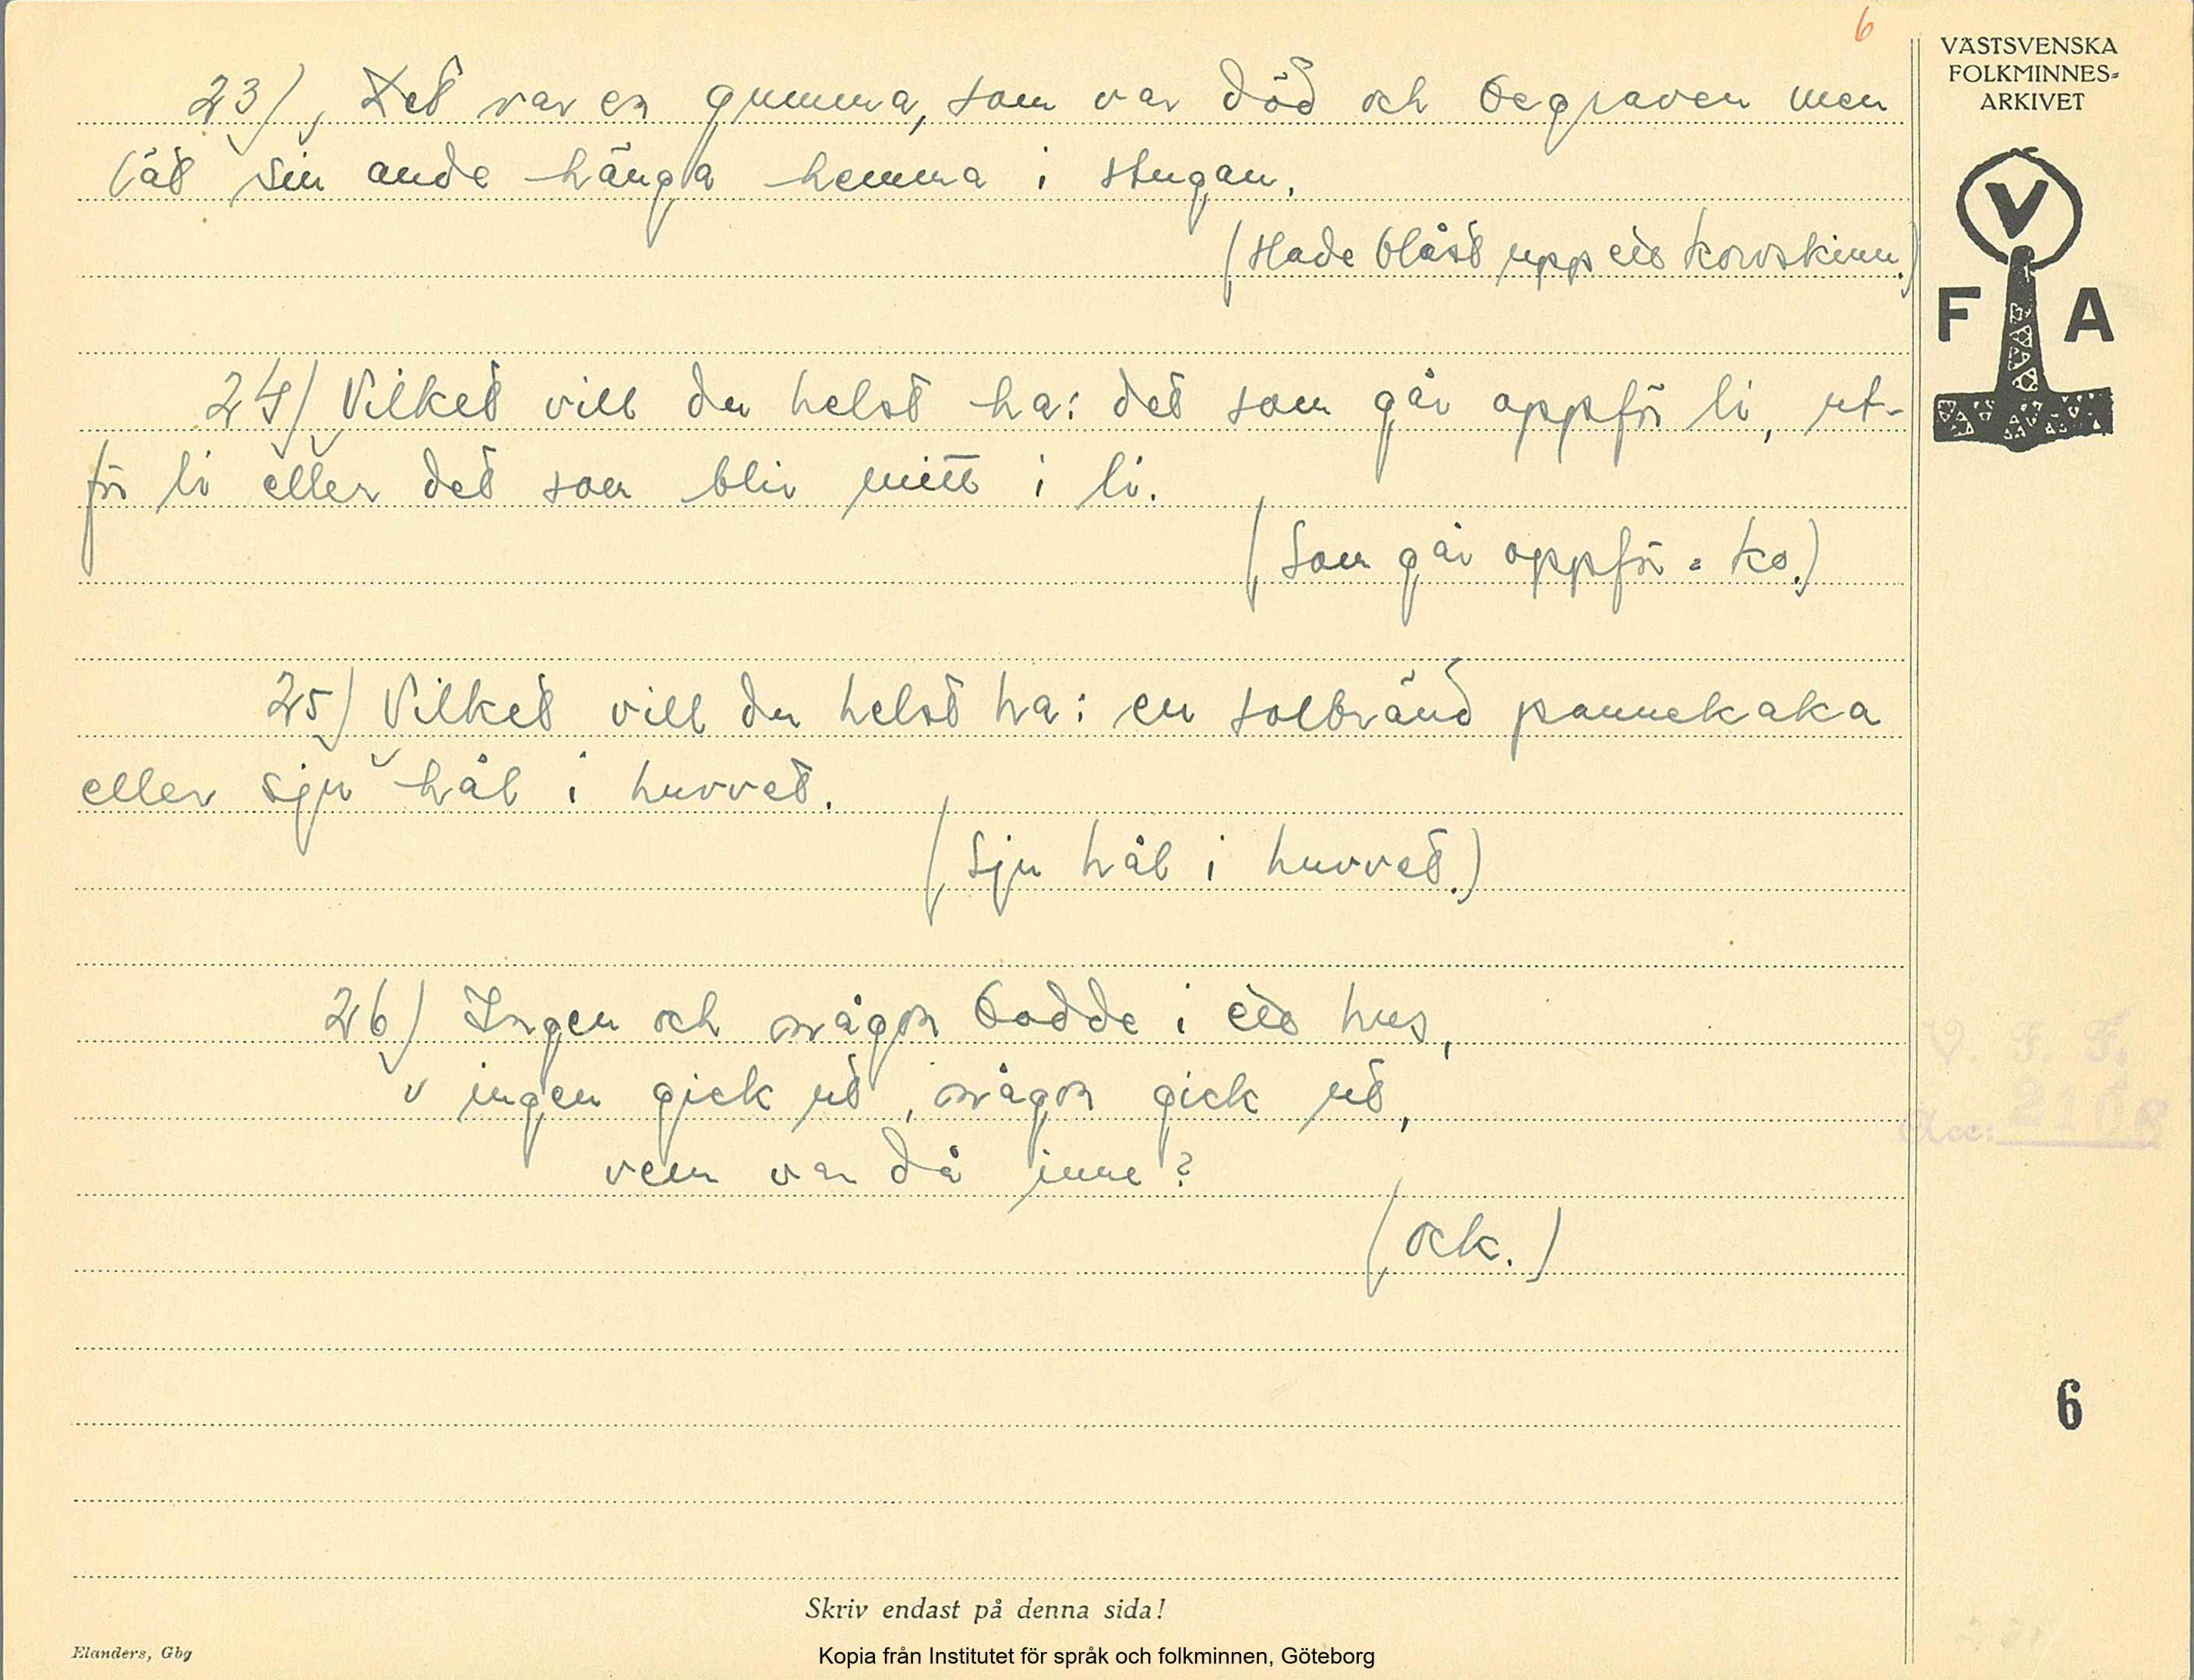 6
VÄSTSVENSKA
FOLKMINNES-
ARKIVET
V
F A
23) Det var en gumma, som var död och begraven men
lät sin ande hänga hemma i stugan.
(Hade blåst upp ett korvskinn.)
24) Vilket vill du helst ha: det som går oppför li, ut-
för li eller det som blir mitt i li.
(Som går oppför = ko.)
25) Vilket vill du helst ha: en solbränd pannekaka
eller sju hål i huvvet.
(Sju hål i huvvet.)
26) Ingen och någon bodde i ett hus,
ingen gick ut, någon gick ut,
vem var då inne?
(Ock.)
V. F. F.
Acc: 2108
6
Skriv endast på denna sida!
Elanders, Gbg
Kopia från Institutet för språk och folkminnen, Göteborg